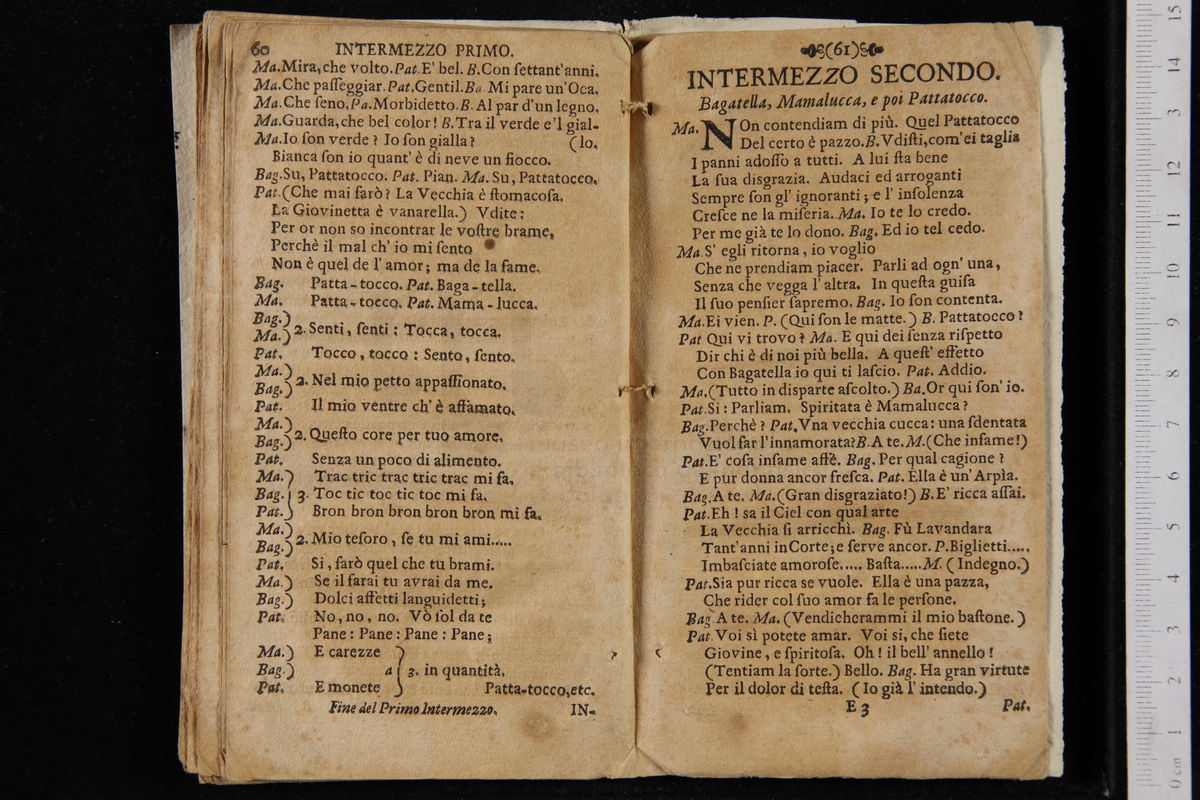 60 INTERMEZZO PRIMO.
Ma.Mira, che volto.Pat.E' bel. B.Con ſettant'anni.
Ma.Che paſſeggiar.Pat.Gentil.Ba.Mi pare un'Oca.
Ma.Che ſeno.Pa.Morbidetto.B. Al par d'un legno.
Ma.Guarda,che bel color! B.Tra il verde e'l gial-
Ma.Io ſon verde? Io ſon gialla? (lo.
Bianca ſon io quant' è di neve un fiocco.
Bag.Su, Pattatocco. Pat. Pian. Ma. Su, Pattatocco.
Pat.(Che mai farò? La Vecchia è ſtomacoſa.
La Giovinetta è vanarella.) Vdite:
Per or non so incontrar le voſtre brame,
Perchè il mal ch' io mi ſento
Non è quel de l' amor; ma de la fame.
Bag. Patta-tocco. Pat. Baga-tella.
Ma. Patta-tocco. Pat. Mama-lucca.
Bag.)
Ma.) 2. Senti, ſenti: Tocca, tocca.
Pat. Tocco, tocco: Sento, ſento.
Ma.)
Bag.) 2. Nel mio petto appaſſionato.
Pat. Il mio ventre ch' è affamato.
Ma.)
Bag.) 2. Queſto core per tuo amore.
Pat. Senza un poco di alimento.
Ma.) Trac tric trac tric trac mi fa.
Bag.} 3. Toc tic toc tic toc mi fa.
Pat.) Bron bron bron bron bron mi fa.
Ma.)
Bag.) 2. Mio teſoro, ſe tu mi ami.....
Pat. Si, farò quel che tu brami.
Ma.) Se il farai tu avrai da me.
Bag.) Dolci affetti languidetti;
Pat. No, no, no. Vò ſol da te
Pane: Pane: Pane: Pane;
Ma.) E carezze
Bag.) a 3. in quantità.
Pat. E monete Patta-tocco,etc.
Fine del Primo Intermezzo. IN-
(61)
INTERMEZZO SECONDO.
Bagatella, Mamalucca, e poi Pattatocco.
Ma. NOn contendiam di più. Quel Pattatocco
Del certo è pazzo.B.Vdiſti,com'ei taglia
I panni adoſſo a tutti. A lui ſta bene
La ſua disgrazia. Audaci ed arroganti
Sempre ſon gl' ignoranti; e l' inſolenza
Creſce ne la miſeria. Ma. Io te lo credo.
Per me già te lo dono. Bag. Ed io tel cedo.
Ma.S' egli ritorna, io voglio
Che ne prendiam piacer. Parli ad ogn' una,
Senza che vegga l' altra. In queſta guiſa
Il ſuo penſier ſapremo. Bag. Io ſon contenta.
Ma.Ei vien. P. (Qui ſon le matte.) B. Pattatocco?
Pat Qui vi trovo? Ma. E qui dei ſenza riſpetto
Dir chi è di noi più bella. A queſt' effetto
Con Bagatella io qui ti laſcio. Pat. Addio.
Ma.(Tutto in disparte aſcolto.) Ba.Or qui ſon' io.
Pat.Si: Parliam. Spiritata è Mamalucca?
Bag.Perchè? Pat.Vna vecchia cucca: una ſdentata
Vuol far l'innamorata?B.A te.M.(Che infame!)
Pat.E' coſa infame affè. Bag. Per qual cagione?
E pur donna ancor freſca. Pat. Ella è un'Arpìa.
Bag.A te. Ma.(Gran disgraziato!) B.E' ricca aſſai.
Pat.Eh! sa il Ciel con qual arte
La Vecchia ſi arricchì. Bag. Fù Lavandara
Tant'anni in Corte;e ſerve ancor. P.Biglietti....
Imbaſciate amoroſe..... Baſta.....M. (Indegno.)
Pat.Sia pur ricca se vuole. Ella è una pazza,
Che rider col ſuo amor fa le perſone.
Bag A te. Ma. (Vendicherammi il mio baſtone.)
Pat.Voi sì potete amar. Voi si, che ſiete
Giovine, e ſpiritoſa. Oh! il bell' annello!
(Tentiam la ſorte.) Bello. Bag. Ha gran virtute
Per il dolor di teſta. (Io già l' intendo.)
E 3 Pat.